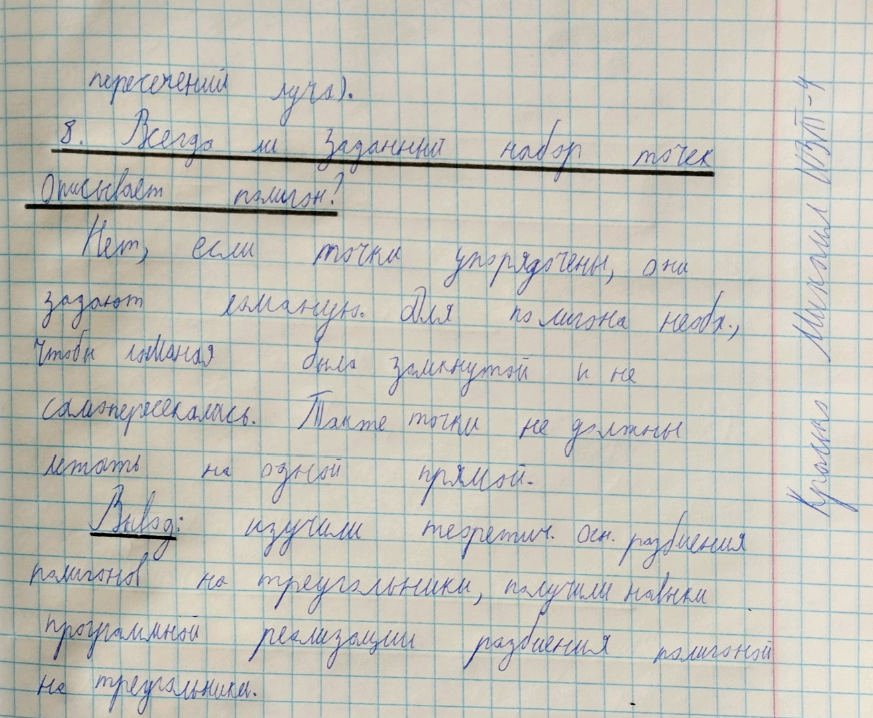 пересечений луча).
8. Всегда ли заданный набор точек
описывает полигон?
Нет, если точки упорядочены, они
задают ломаную. Для полигона необх.,
чтобы ломаная была замкнутой и не
самопересекалась. Также точки не должны
лежать на одной прямой.
Вывод: изучили теоретич. осн. разбиения
полигонов на треугольники, получили навыки
программной реализации разбиения полигонов
на треугольники.
Михаил